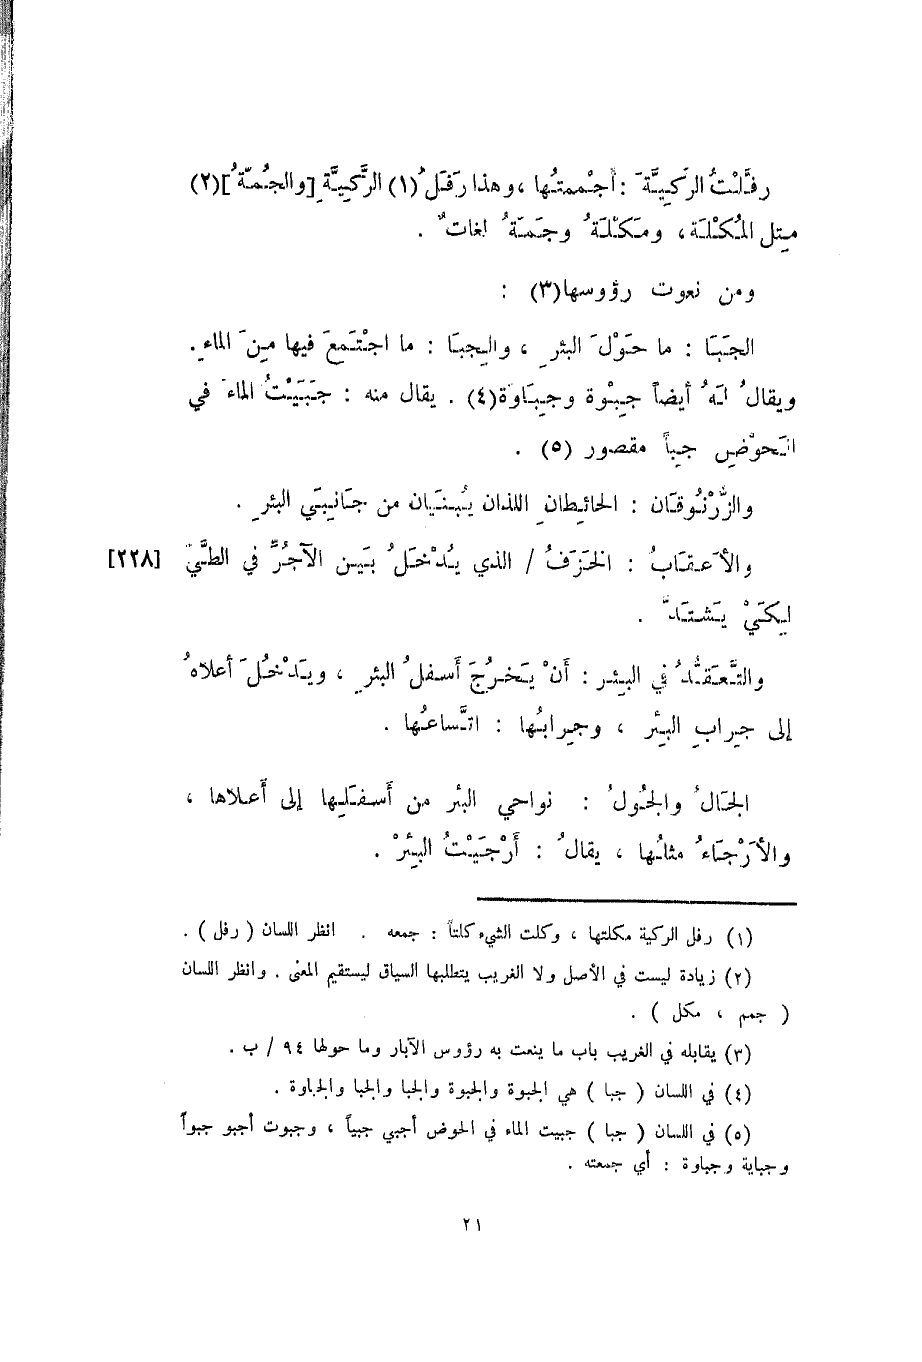 رفَّلْتُ الرَكيِيَّةَ : أجْممتُها ، وهذا رَفَلُ (١) الرَّكيَّةِ [والجُمّةُ](٢)
مِثل المُكْلَة ، ومَكْلَةُ وجَمَةُ لغاتٌ .
ومن نعوت رؤوسها(٣) :
الجَبَا : ما حَوْلَ البئرِ ، والجِبَا : ما اجْتَمعَ فيها مِنَ الماءِ .
ويقالُ لَهُ أيضاً جِبْوة وجِبَاوَة(٤) . يقال منه : جَبَيْتُ الماءَ في
الحَوْضِ جِباً مقصور (٥) .
والزُّرْنُوقَان : الحائِطانِ اللذان يُبنَيان من جَانِبَي البئرِ .
والأعقَابُ : الخَزَفُ / الذي يُدْخَلُ بَين الآجُرِّ في الطَّيِّ [٢٢٨]
لِكَيْ يَشتَدَّ .
والتَّعَقُّدُ في البِئر : أنْ يَخرُجَ أسفلُ البئرِ ، ويَدْخُلَ أعلاهُ
إلى جِرابِ البِئر ، وجِرابُها : اتَّساعُها .
الجَالُ والجُولُ : نواحي البئر من أَسفَلِها إلى أَعلاها ،
والأَرْجَاءُ مثلُها ، يقالُ : أَرْجَيْتُ البِئرْ .
(١) رفل الركية مكلتها ، وكلت الشيء كلتاً : جمعه . انظر اللسان ( رفل ) .
(٢) زيادة ليست في الأصل ولا الغريب يتطلبها السياق ليستقيم المعنى . وانظر اللسان
( جمم ، مكل ) .
(٣) يقابله في الغريب باب ما ينعت به رؤوس الآبار وما حولها ٩٤ / ب .
(٤) في اللسان ( جبا ) هي الجبوة والجبوة والجبا والجبا والجباوة .
(٥) في اللسان ( جبا ) جبيت الماء في الحوض أجبي جبياً ، وجبوت أجبو جبواً
وجباية وجباوة : أي جمعته .
٢١